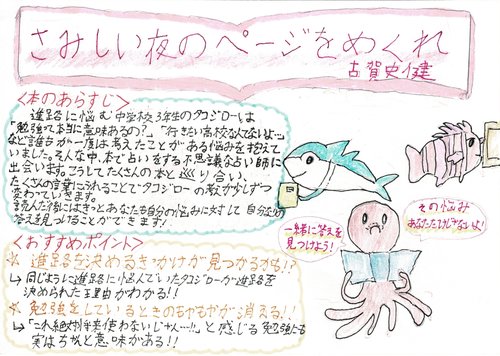 さみしい夜のページをめくれ
古賀史健
<本のあらすじ>
進路に悩む中学校3年生のタコジローは
「勉強って本当に意味あるの?」「行きたい高校なんてないよ…」
など誰もが一度は考えたことがある悩みを抱えて
いました。そんな中、本で占いをする不思議な占い師に
出会います。こうしてたくさんの本と巡り合い、
たくさんの言葉にふれることでタコジローの考えが少しずつ
変わっていきます。
読んだ後にはきっとあなたも自分の悩みに対して自分なりの
答えを見つけることができます!
<おすすめポイント>
※ 進路を決めるきっかけが見つかるかも!?
↳ 同じように進路に悩んでいたタコジローが進路を
決められた理由がわかる!!
※ 勉強をしているときのもやもやが消える!!
↳「これ絶対将来使わないじゃん…!!」と感じる勉強にも
実はちゃんと意味がある!!
一緒に答えを
見つけよう!
その悩み
あなただけじゃないよ!